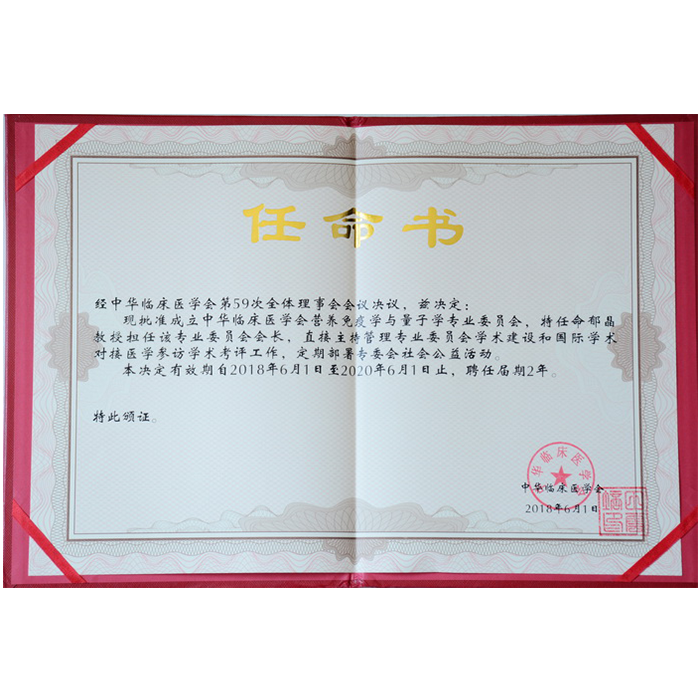 任命书
经中华临床医学会第59次全体理事会会议决议，兹决定：
现批准成立中华临床医学会营养免疫学与量子学专业委员会，特任命郁晶
教授担任该专业委员会会长，直接主持管理专业委员会学术建设和国际学术
对接医学参访学术考评工作，定期部署专委会社会公益活动。
本决定有效期自2018年6月1日至2020年6月1日止，聘任届期2年。
特此颁证。
中华临床医学会
中华临床医学会
2018年6月1日